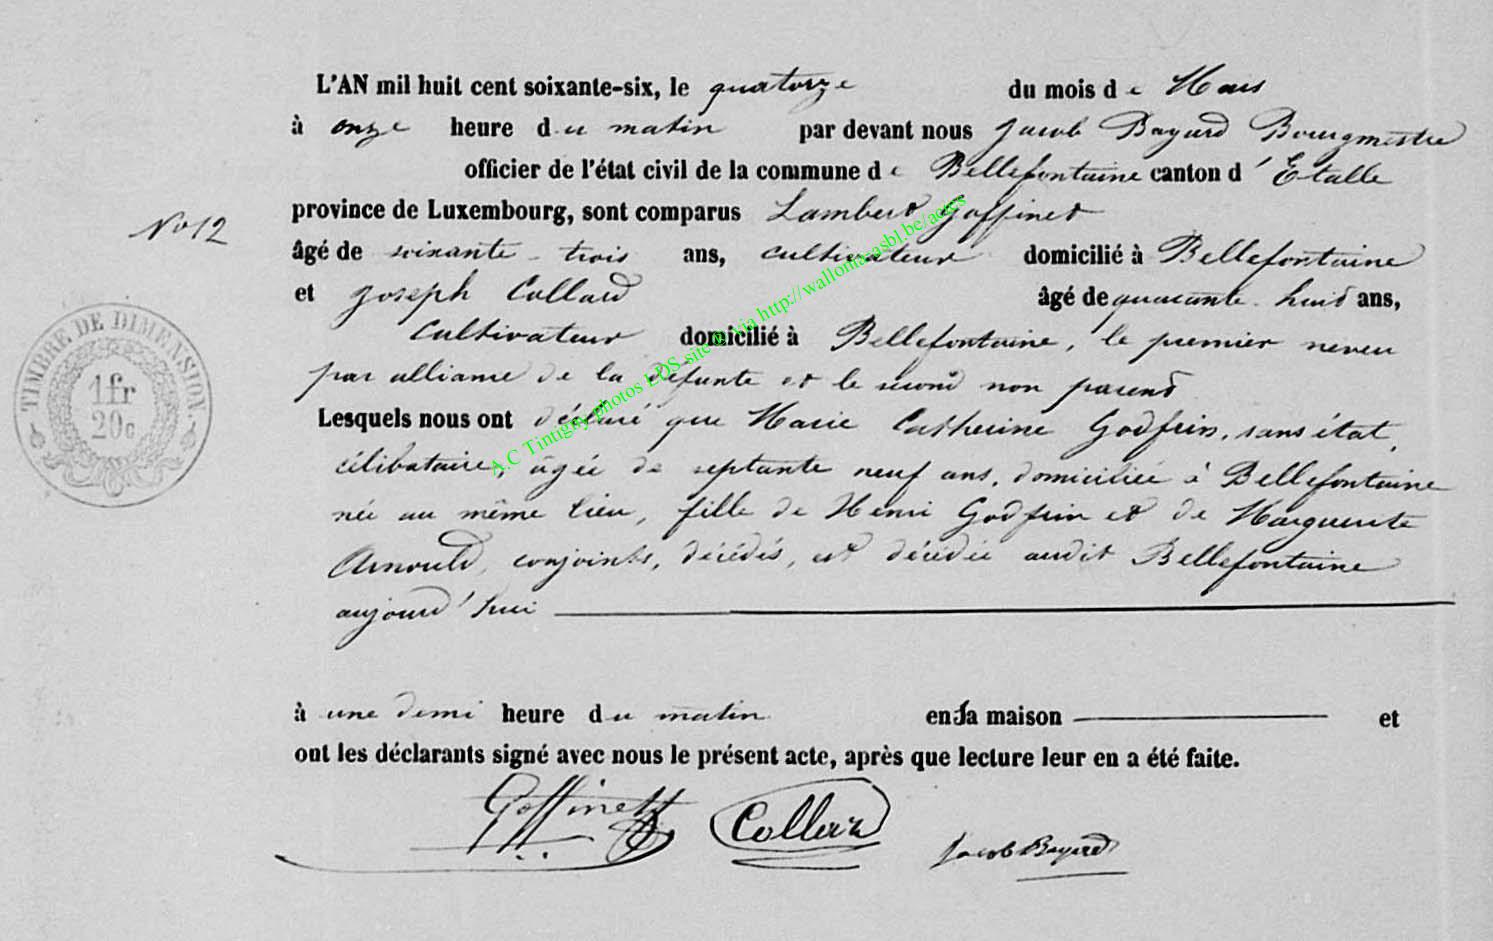 L'AN mil huit cent soixante-six, le quatorze du mois de Mars
à onze heure du matin par devant nous Jacob Bayard Bourgmestre
officier de l'état civil de la commune de Bellefontaine canton d'Etalle
province de Luxembourg, sont comparus Lambert Goffinet
No 12
âgé de soixante-trois ans, cultivateur domicilié à Bellefontaine
et Joseph Collard âgé de quarante-huit ans,
Cultivateur domicilié à Bellefontaine, le premier neveu
par alliance de la défunte et le second non parent
Lesquels nous ont déclaré que Marie Catherine Godfrin, sans état,
célibataire, âgée de septante neuf ans, domiciliée à Bellefontaine
née au même lieu, fille de Henri Godfrin et de Marguerite
Arnould, conjoints, décédés, est décédée audit Bellefontaine
aujourd'hui
à une demi heure du matin en sa maison et
ont les déclarants signé avec nous le présent acte, après que lecture leur en a été faite.
Goffinet Collard Jacob Bayard
TIMBRE DE DIMENSION.
1fr
20c
A.C Tintigny photos LDS site @ via http://wallonia-asbl.be/actes